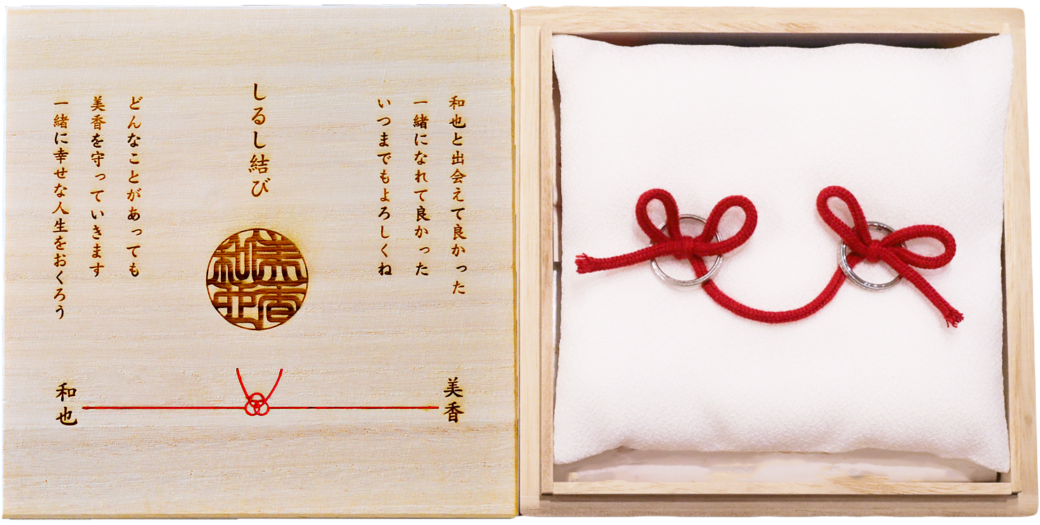 和也と出会えて良かった
一緒になれて良かった
いつまでもよろしくね
しるし結び
美香
和也
どんなことがあっても
美香を守っていきます
一緒に幸せな人生をおくろう
美香
和也